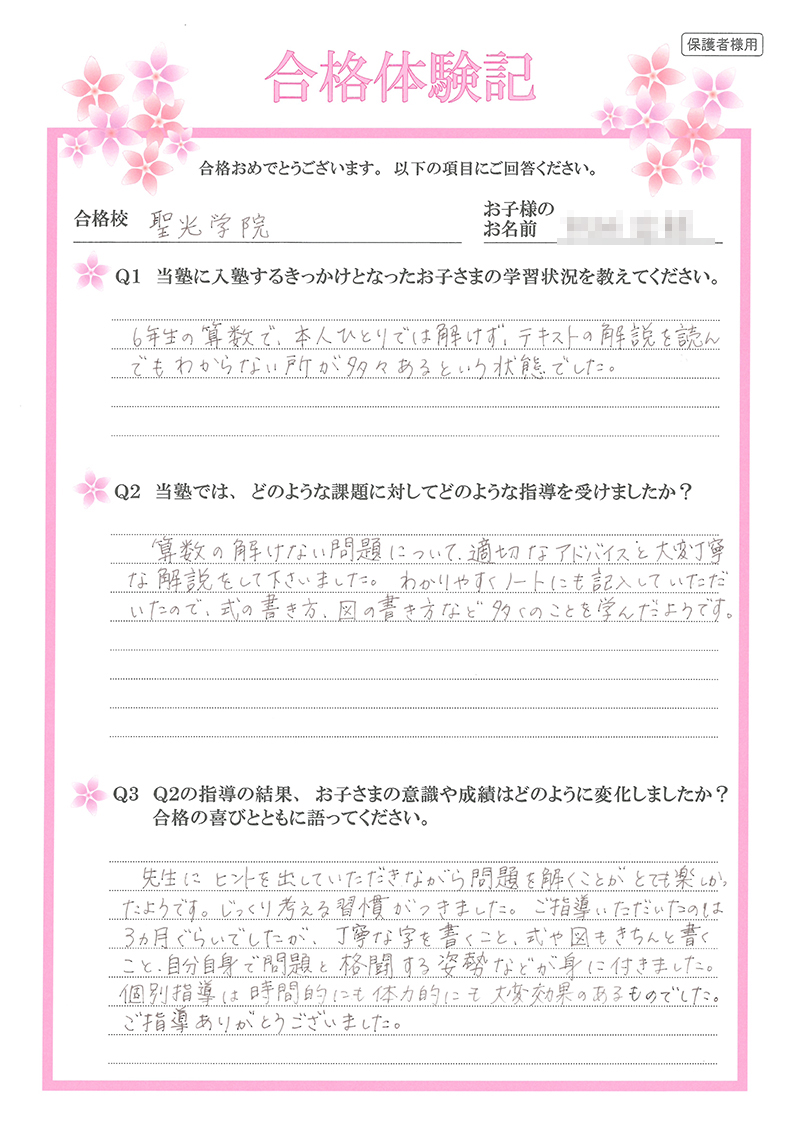 保護者様用
合格体験記
合格おめでとうございます。以下の項目にご回答ください。
合格校 聖光学院
お子様の
お名前
Q1 当塾に入塾するきっかけとなったお子さまの学習状況を教えてください。
6年生の算数で、本人ひとりでは解けず、テキストの解説を読ん
でもわからない所が多々あるという状態でした。
Q2 当塾では、どのような課題に対してどのような指導を受けましたか？
算数の解けない問題について、適切なアドバイスと大変丁寧
な解説をして下さいました。わかりやすくノートにも記入していただ
いたので、式の書き方、図の書き方など多くのことを学んだようです。
Q3 Q2の指導の結果、お子さまの意識や成績はどのように変化しましたか？
合格の喜びとともに語ってください。
先生にヒントを出していただきながら問題を解くことがとても楽しかっ
たようです。じっくり考える習慣がつきました。ご指導いただいたのは
3ヵ月ぐらいでしたが、丁寧な字を書くこと、式や図もきちんと書く
こと、自分自身で問題と格闘する姿勢などが身に付きました。
個別指導は時間的にも体力的にも大変効果のあるものでした。
ご指導ありがとうございました。